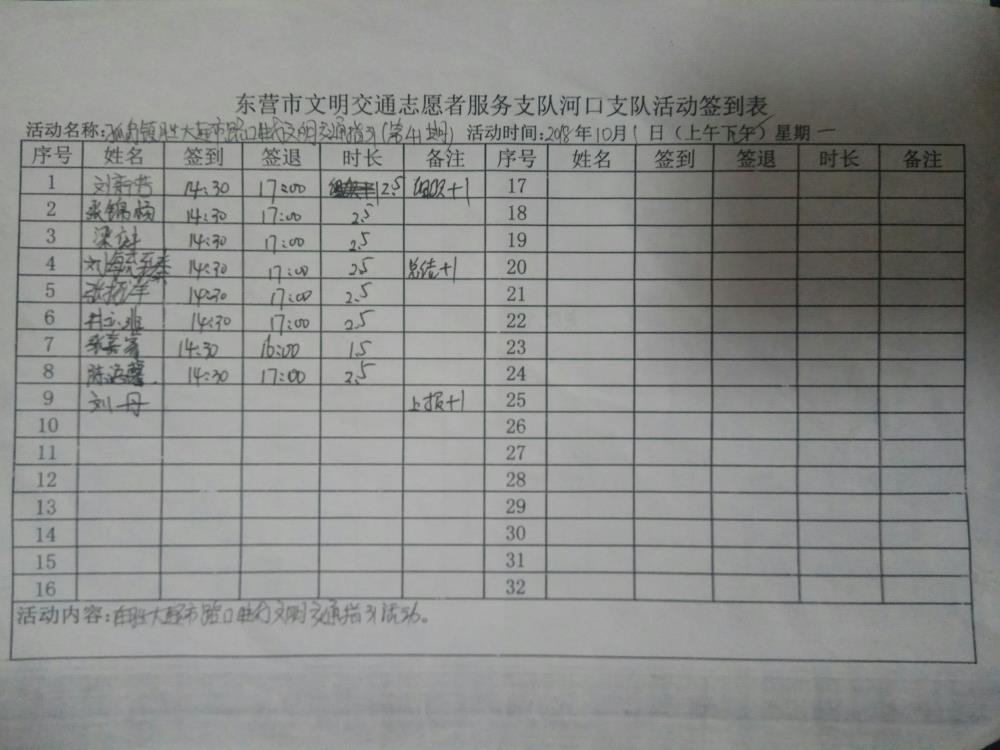 东营市文明交通志愿者服务支队河口支队活动签到表
活动名称:孤岛镇胜大超市路口进行文明交通指引(第41期) 活动时间:2018年10月1日(上午下午)星期一
序号 姓名 签到 签退 时长 备注 序号 姓名 签到 签退 时长 备注
1 刘新芳 14:30 17:00 2.5 组织+1 17
2 张锦杨 14:30 17:00 2.5 18
3 梁 14:30 17:00 2.5 19
4 刘 14:30 17:00 2.5 总结+1 20
5 张 洋 14:30 17:00 2.5 21
6 14:30 17:00 2.5 22
7 14:30 16:00 1.5 23
8 陈 馨 14:30 17:00 2.5 24
9 刘丹 上报+1 25
10 26
11 27
12 28
13 29
14 30
15 31
16 32
活动内容:在胜大超市路口进行文明交通指引活动。